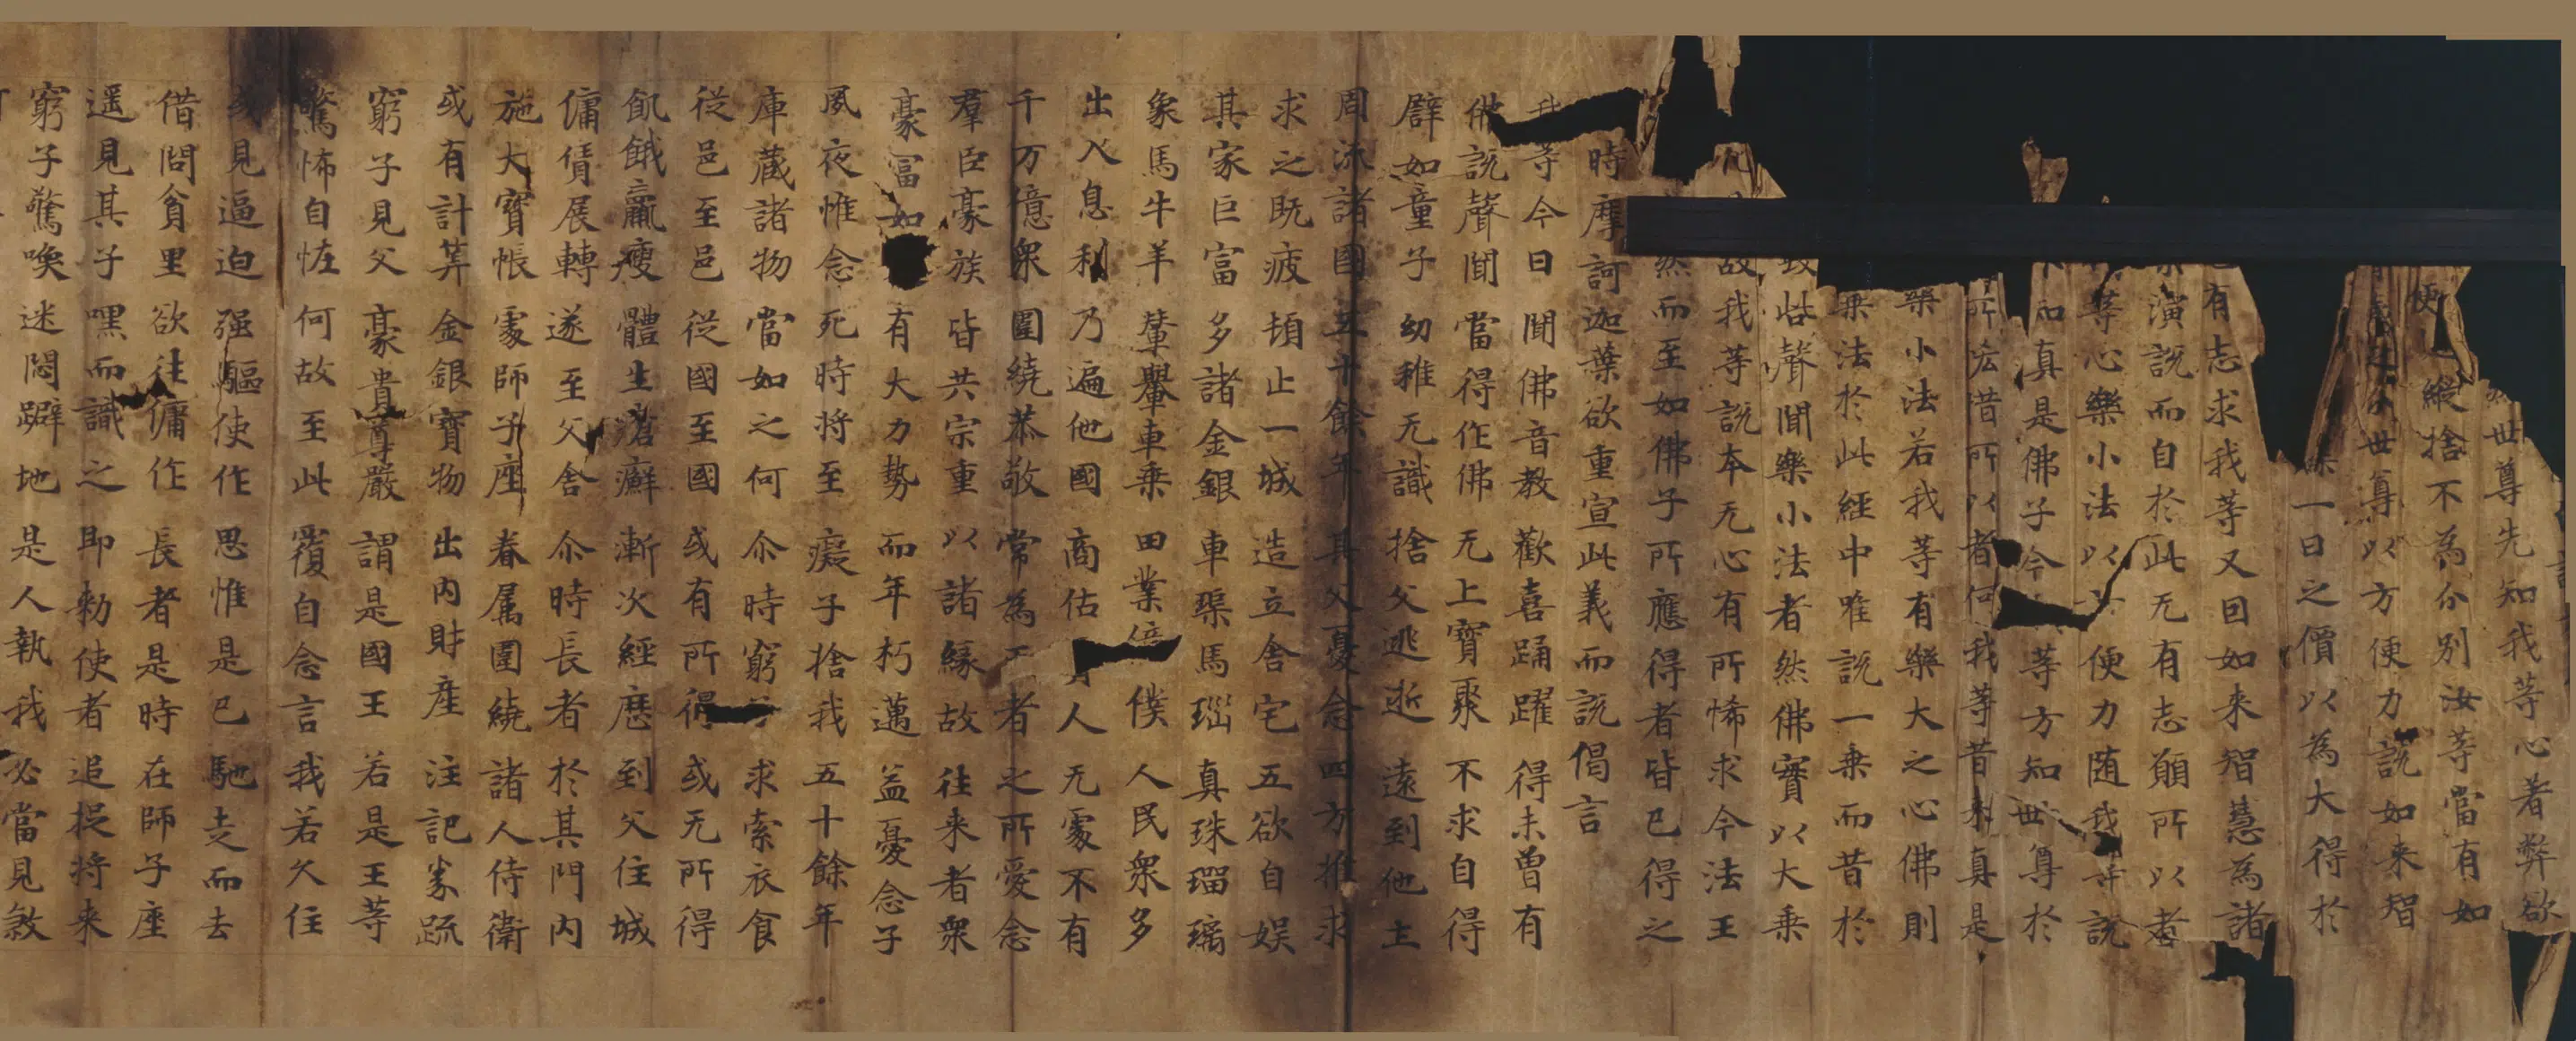 世尊先知我等心著弊欲
便縱捨不為分別汝等當有如
世尊以方便力說如来智
一日之價以為大得於
有志求我等又因如来智慧為諸
演說而自於此无有志願所以者
等心樂小法以方便力随我等說
而真是佛子今等方知世尊於
所恡惜所以者何我等昔来真是
樂小法若我等有樂大之心佛則
乗法於此經中唯說一乗而昔於
毀呰聲聞樂小法者然佛實以大乗
故我等說本无心有所悕求今法王
然而至如佛子所應得者皆已得之
時摩訶迦葉欲重宣此義而說偈言
我等今日 聞佛音教 歡喜踊躍 得未曾有
佛說聲聞 當得作佛 无上寶聚 不求自得
譬如童子 幼稚无識 捨父逃逝 遠到他土
周流諸國 五十餘年 其父憂念 四方推求
求之既疲 頓止一城 造立舍宅 五欲自娱
其家巨富 多諸金銀 車𤦲馬瑙 真珠瑠璃
象馬牛羊 輦轝車乗 田業僮僕 人民衆多
出入息利 乃遍他國 商估人 无䖏不有
千万億衆 圍繞恭敬 常為王者 之所愛念
羣臣豪族 皆共宗重 以諸緣故 往来者衆
豪富如 有大力勢 而年朽邁 益憂念子
夙夜惟念 死時将至 癡子捨我 五十餘年
庫蔵諸物 當如之何 尒時窮子 求索衣食
從邑至邑 從國至國 或有所得 或无所得
飢餓羸瘦 體生瘡癬 漸次經歷 到父住城
傭賃展轉 遂至父舍 尒時長者 於其門内
施大寶帳 䖏師子座 眷属圍繞 諸人侍衛
或有計筭 金銀寶物 出内財産 注記劵䟽
窮子見父 豪貴尊嚴 謂是國王 若是王等
驚怖自恠 何故至此 覆自念言 我若久住
或見逼迫 强驅使作 思惟是已 馳走而去
借問貧里 欲往傭作 長者是時 在師子座
遥見其子 嘿而識之 即勑使者 追捉将来
窮子驚喚 迷悶躃地 是人執我 必當見煞